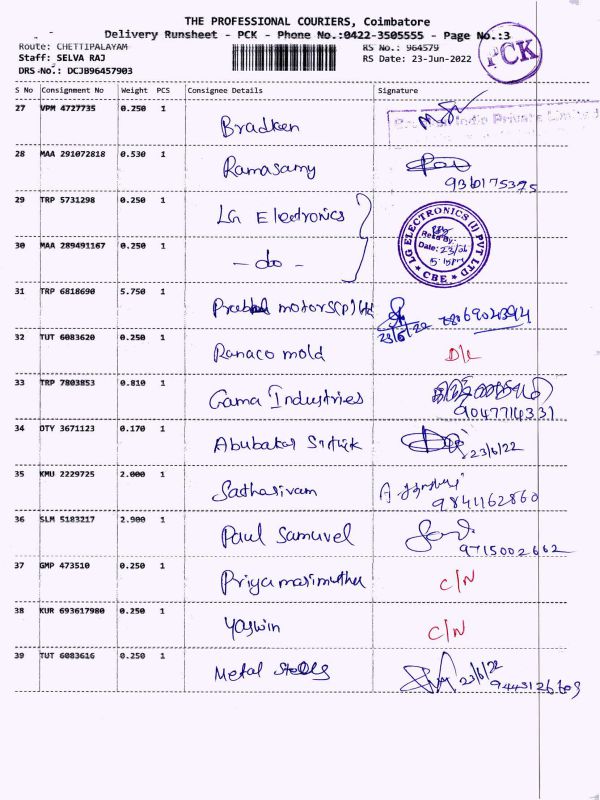 THE PROFESSIONAL COURIERS, Coimbatore
Delivery Runsheet - PCK - Phone No.:0422-3505555 - Page No.:3
Route: CHETTIPALAYAM
RS No.: 964579
Staff: SELVA RAJ
RS Date: 23-Jun-2022
DRS No.: DCJB96457903
PCK
S No Consignment No Weight PCS Consignee Details Signature
27 VPM 4727735 0.250 1 Bradken
India Private Limited
28 MAA 291072818 0.530 1 Ramasamy
9360175375
29 TRP 5731298 0.250 1 LG Electronics
30 MAA 289491167 0.250 1 - do -
LG ELECTRONICS (I) PVT LTD
Date: 23/06
★ CBE ★
31 TRP 6818690 5.750 1 motors(p) ltd
23/6/22
32 TUT 6083620 0.250 1 Ranaco mold D/L
33 TRP 7803853 0.810 1 Gama Industries
9047714331
34 OTY 3671123 0.170 1 Abubakar
23/6/22
35 KMU 2229725 2.000 1 Sathasivam
9841162860
36 SLM 5183217 2.900 1 Paul Samuvel
9715002662
37 GMP 473510 0.250 1 Priyamarimuthu C/N
38 KUR 693617980 0.250 1 Yaswin C/N
39 TUT 6083616 0.250 1 Metal Steels
23/6/22